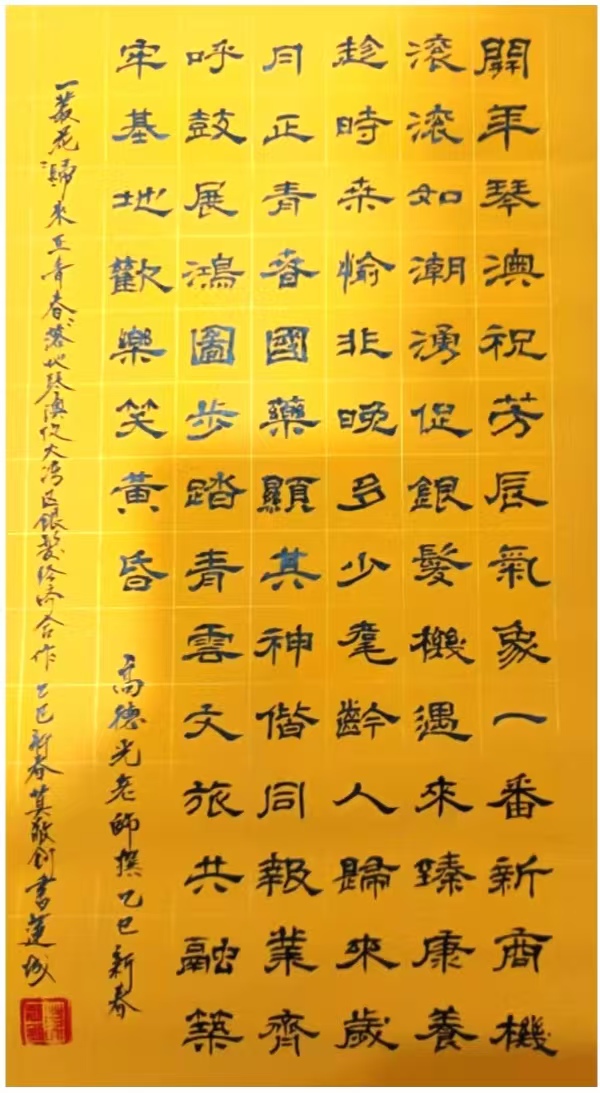 開年琴澳祝芳辰氣象一番新商機
滾滾如潮湧促銀髮機遇來臻康養
趁時桒愉非晚多少耄齡人歸來歲
月正青春國藥顯其神偕同報業齊
呼鼓展鴻圖步踏青雲文旅共融築
牢基地歡樂笑黃昏
高德光老師撰乙巳新春
一叢花歸來正青春落地琴澳促大湾区銀髮经济合作乙巳新春莫敬創書蓮城